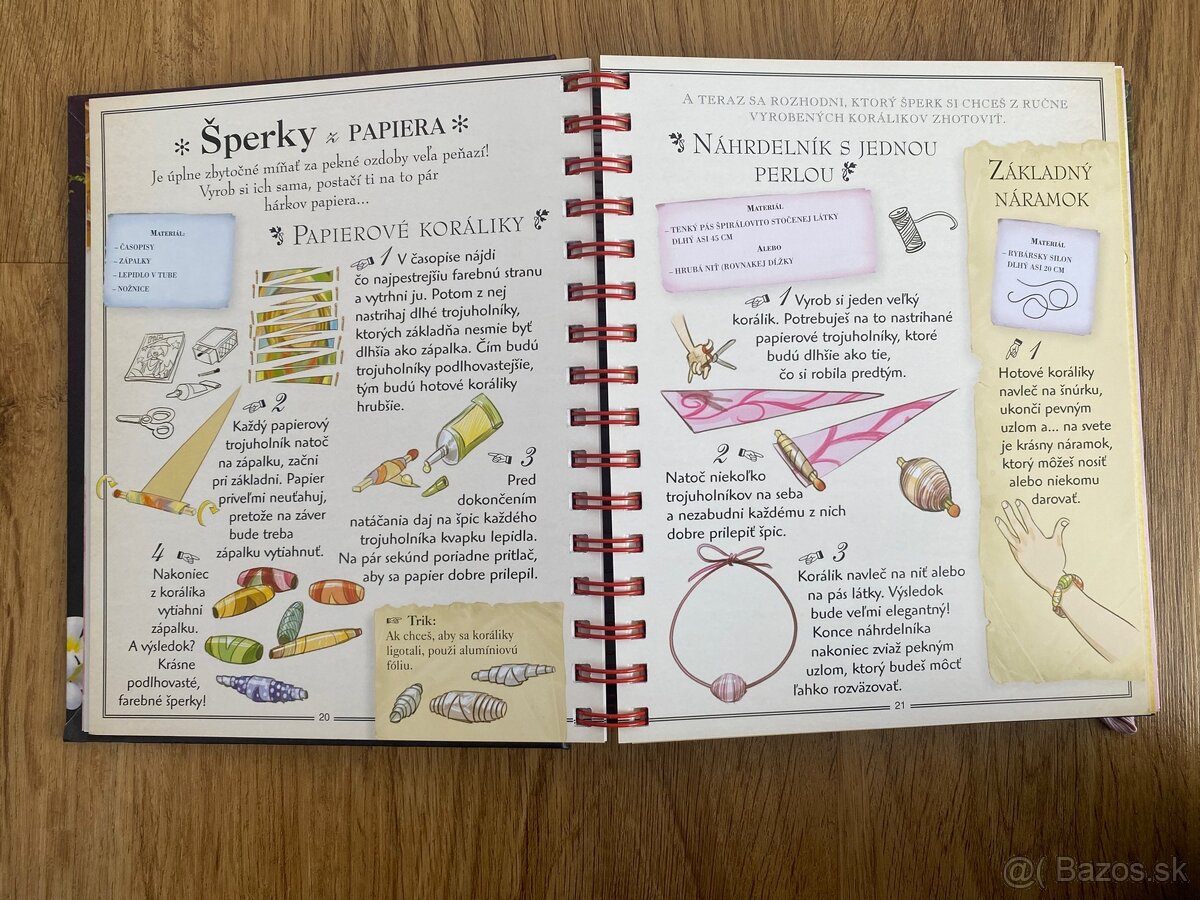 * Šperky z PAPIERA *
Je úplne zbytočné míňať za pekné ozdoby veľa peňazí!
Vyrob si ich sama, postačí ti na to pár
hárkov papiera...
MATERIÁL:
– ČASOPISY
– ZÁPALKY
– LEPIDLO V TUBE
– NOŽNICE
PAPIEROVÉ KORÁLIKY
1 V časopise nájdi
čo najpestrejšiu farebnú stranu
a vytrhni ju. Potom z nej
nastrihaj dlhé trojuholníky,
ktorých základňa nesmie byť
dlhšia ako zápalka. Čím budú
trojuholníky podlhovastejšie,
tým budú hotové koráliky
hrubšie.
2
Každý papierový
trojuholník natoč
na zápalku, začni
pri základni. Papier
priveľmi neuťahuj,
pretože na záver
bude treba
zápalku vytiahnuť.
3
Pred
dokončením
natáčania daj na špic každého
trojuholníka kvapku lepidla.
Na pár sekúnd poriadne pritlač,
aby sa papier dobre prilepil.
4
Nakoniec
z korálika
vytiahni
zápalku.
A výsledok?
Krásne
podlhovasté,
farebné šperky!
Trik:
Ak chceš, aby sa koráliky
ligotali, použi alumíniovú
fóliu.
20
A TERAZ SA ROZHODNI, KTORÝ ŠPERK SI CHCEŠ Z RUČNE
VYROBENÝCH KORÁLIKOV ZHOTOVIŤ.
NÁHRDELNÍK S JEDNOU
PERLOU
MATERIÁL
– TENKÝ PÁS ŠPIRÁLOVITO STOČENEJ LÁTKY
DLHÝ ASI 45 CM
ALEBO
– HRUBÁ NIŤ (ROVNAKEJ DĹŽKY
1 Vyrob si jeden veľký
korálik. Potrebuješ na to nastrihané
papierové trojuholníky, ktoré
budú dlhšie ako tie,
čo si robila predtým.
2
Natoč niekoľko
trojuholníkov na seba
a nezabudni každému z nich
dobre prilepiť špic.
3
Korálik navleč na niť alebo
na pás látky. Výsledok
bude veľmi elegantný!
Konce náhrdelníka
nakoniec zviaž pekným
uzlom, ktorý budeš môcť
ľahko rozväzovať.
21
ZÁKLADNÝ
NÁRAMOK
MATERIÁL
– RYBÁRSKY SILON
DLHÝ ASI 20 CM
1
Hotové koráliky
navleč na šnúrku,
ukonči pevným
uzlom a... na svete
je krásny náramok,
ktorý môžeš nosiť
alebo niekomu
darovať.
@( Bazos.sk